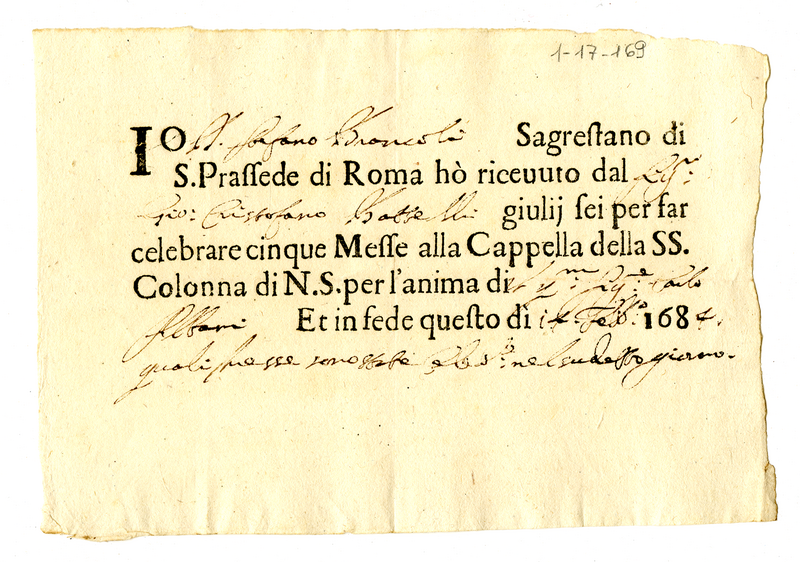 1-17-169
IO D. Stefano Sagrestano di
S. Praſſede di Roma hò riceuuto dal Sig.re
Gio: Cristofano Battelli giulij ſei per far
celebrare cinque Meſſe alla Cappella della SS.
Colonna di N.S. per l'anima di Sig.e Carlo
Albani Et in fede queſto dì 14 Feb.o 1684.
quali messe sono state nel sudetto giorno.